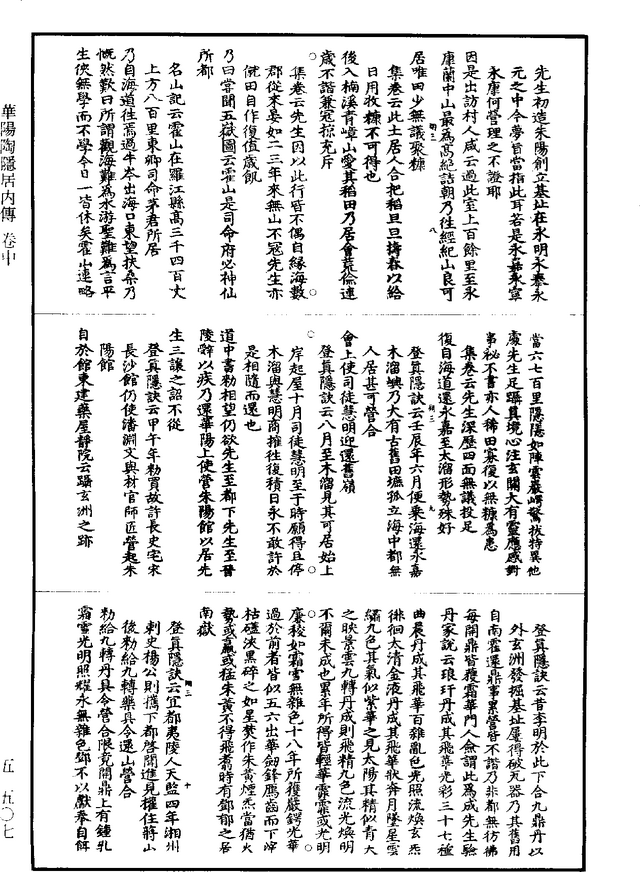 華陽陶隱居內傳 卷中
先生初造朱陽創立基址在永明永泰永
元之中令夢旨當指此耳答是永嘉永寧
永康何管理之不證耶
因是出訪村人咸云過此室上百餘里至永
康蘭中山最為高絕詰朝乃往經紀山良可
居唯田少無議聚糠
集卷云此土居人合把稻旦旦擣舂以給
日用牧糠不可得也
後入楠溪青嶂山愛其稻田乃居會荒儉連
歲不諧兼寇掠充斥
集卷云先生因以此行皆不偶自緣海數
郡從來晏如二三年來無山不寇先生亦
俶田自作復值歲飢
乃曰嘗聞五嶽圖云霍山是司命府必神仙
所都
名山記云霍山在羅江縣高三千四百丈
上方八百里東卿司命茅君所居
乃自海道往焉過牛岑出海口東望扶桑乃
慨然歎曰所謂觀海難為水游聖難為言平
生俠無學而不學今日一皆休矣霍山連略
當六七百里隱隱如陣雲巖崿驚拔特異他
處先生足躡真境心注玄關大有靈應感對
事秘不書亦人稀田寡復以無糠為患
集卷云先生深歷四面無議投足
復自海道還永嘉至太溜形勢殊好
登真隱訣云壬辰年六月便乘海還永嘉
木溜嶼乃大有古舊田墌孤立海中都無
人居甚可營合
會上使司徒慧明迎還舊嶺
登真隱訣云八月至木溜見其可居始上
岸起屋十月司徒慧明至于時願得且停
木溜與慧明商搉往復積日永不敢許於
是相隨而還也
道中書勑相望仍欲先生至都下先生至晉
陵辭以疾乃還華陽上使營朱陽館以居先
生三讓之詔不從
登真隱訣云甲午年勑買故許長史宅宋
長沙館仍使潘淵文與材官師匠營起朱
陽館
自於館東建藥屋靜院云躡玄洲之跡
登真隱訣云昔李明於此下合九鼎丹以
外玄洲發掘基址屢得破瓦器乃其舊用
自南霍還鼎事累營皆不諧乃非都無彷彿
每開鼎皆獲霜華門人僉謂此為成先生驗
丹家說云琅玕丹成其飛華光彩三十七種
曲晨丹成其飛華百雜亂色光照流煥玄炁
徘徊太清金液丹成其飛華狀奔月墜星雲
繡九色其氣似紫華之見太陽其精似青天
之映景雲九轉丹成則飛精九色流光煥明
不爾未成也累年所得皆輕華霏霏或光明
廉稜如霜雪無雜色十八年所獲嚴鍔光華
過於前者皆似五六出華劍鋒鴈齒而下滓
枯礚淡黑碎之如星熒作朱黃煙炁當猶火
勢或羸或猛朱黃不得飛翥時有鄧郁之居
南嶽
登真隱訣云宜都夷陵人天監四年湘州
刺史楊公則攜下都啓聞進見權住蔣山
後勑給九轉藥具令還山營合
勑給九轉丹具令營合限竟開鼎上有鍾乳
霜雪光明照耀永無雜色鄧不以獻奉自餌
五 五〇七